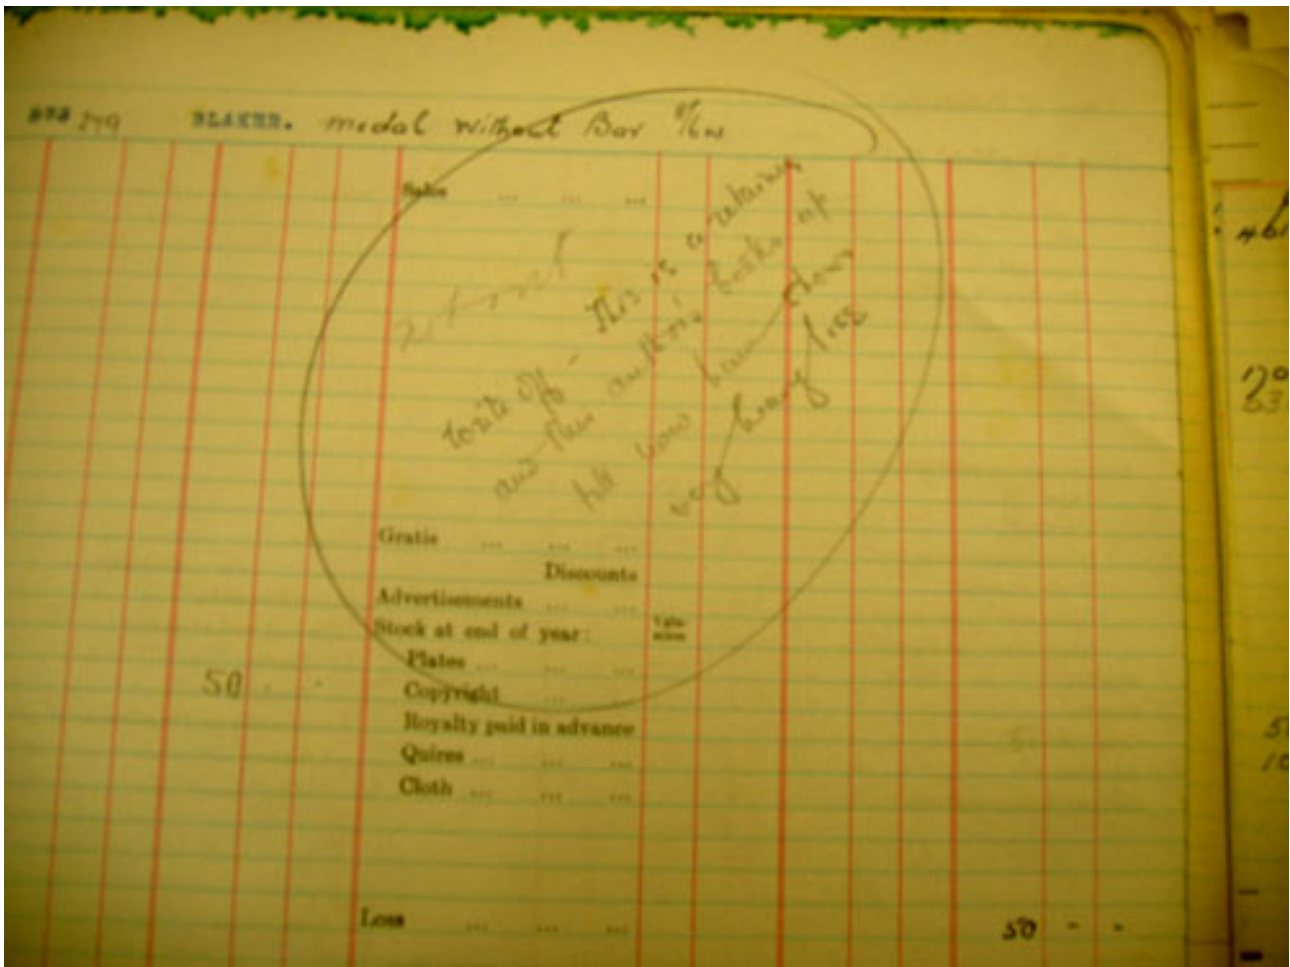 279 BLAKER. medal without Bar
Sales ... ... ...
write off - This is a retainer
and this author's books up
till now have shown
very heavy loss
Gratis ... ... ...
Discounts
Advertisements ... ...
Stock at end of year:
Plates ... ... ...
50 - - Copyright ... ...
Royalty paid in advance
Quires ... ... ...
Cloth ... ... ...
Loss ... ... ... 50 - -